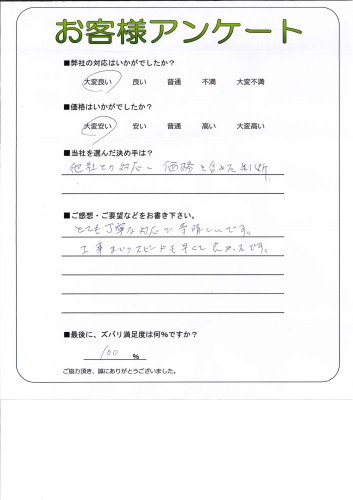 お客様アンケート
■弊社の対応はいかがでしたか？
大変良い 良い 普通 不満 大変不満
■価格はいかがでしたか？
大変安い 安い 普通 高い 大変高い
■当社を選んだ決め手は？
他社との対応、価格を含めた判断
■ご感想・ご要望などをお書き下さい。
とても丁寧な対応で素晴しいです。
工事までのスピードも早くて良かったです。
■最後に、ズバリ満足度は何%ですか？
100 %
ご協力頂き、誠にありがとうございました。